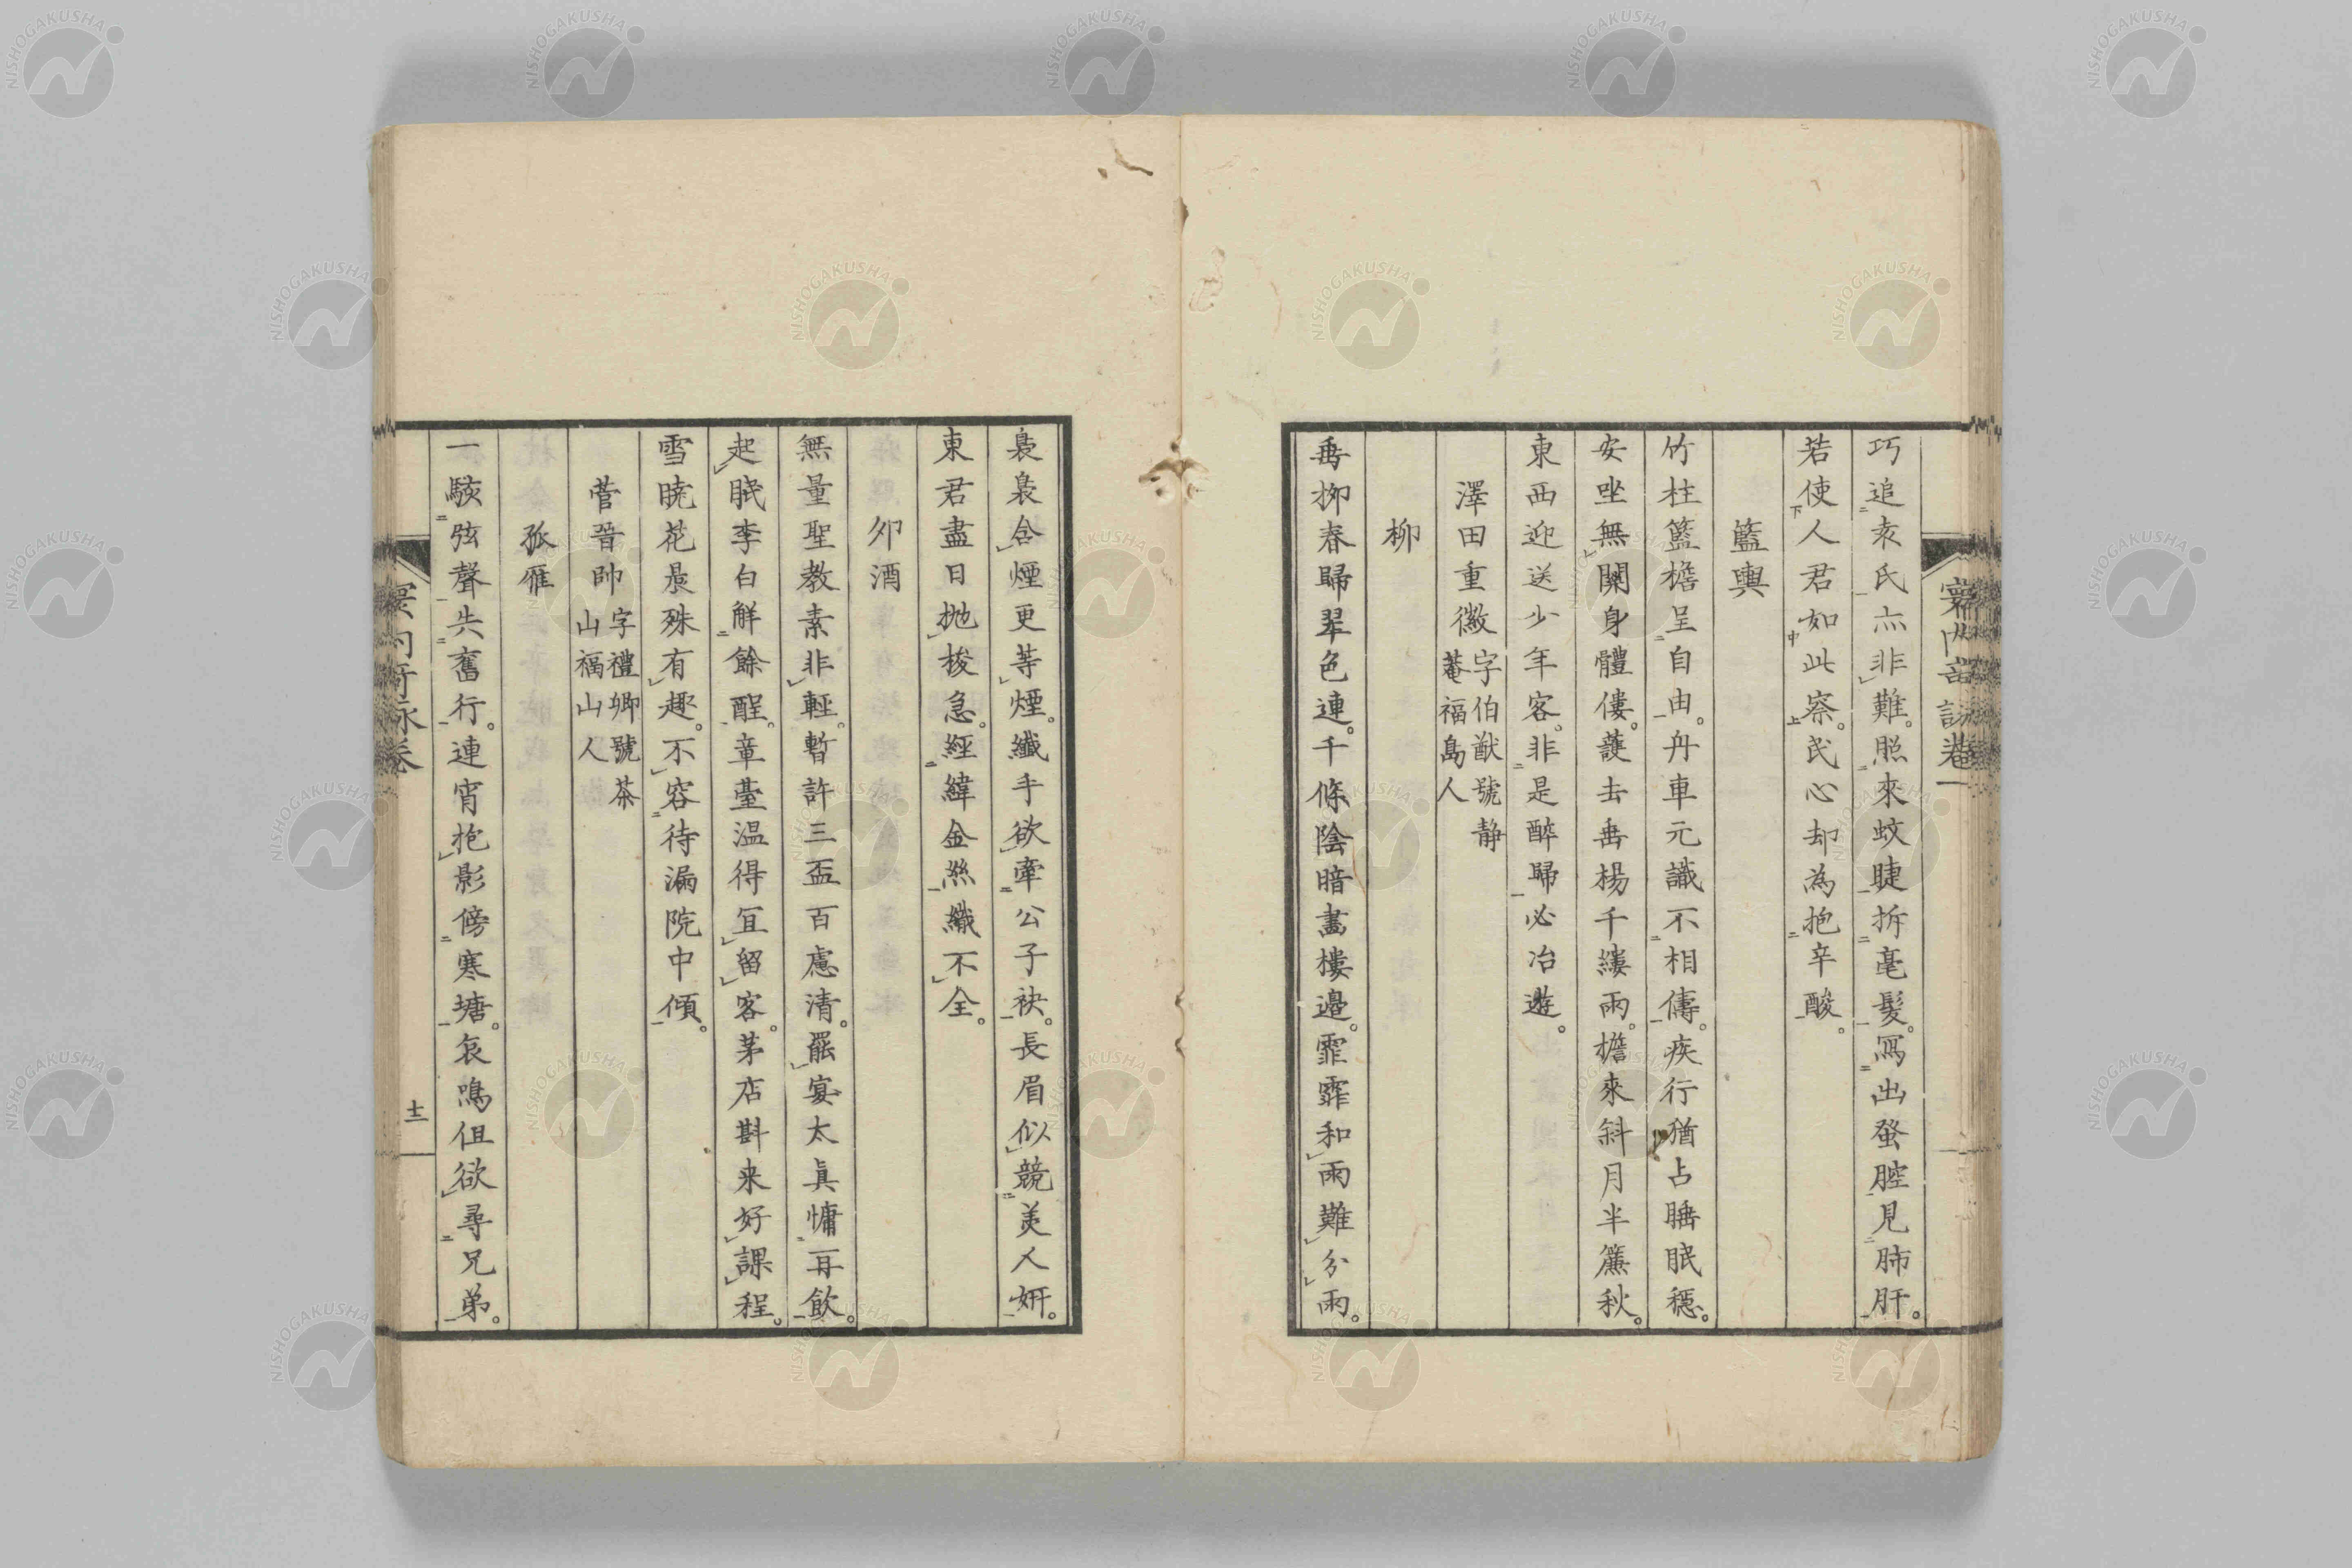 巧追袁氏亦非難。照來蚊睫拆毫髮。寫出蛩腔見肺肝。
若使人君如此察。民心却為抱辛酸。
籃輿
竹柱籃檐呈自由。舟車元識不相儔。疾行猶占臃眠穩。
安坐無關身體僂。護去垂楊千縷雨。檐來斜月半簾秋。
東西迎送少年客。非是醉歸必冶遊。
澤田重徽字伯猷號静菴福島人
柳
垂柳春歸翠色連。千條陰暗畫樓邊。霏霏和雨難分雨。
裊裊含煙更等煙。纖手欲牽公子袂。長眉似競美人妍。
東君盡日拋梭急。經緯金絲織不全。
卯酒
無量聖教素非輕。暫許三盃百慮清。罷宴太真慵再飲。
起眠李白解餘酲。章臺温得宜留客。茅店斟来好課程。
雪曉花晨殊有趣。不容待漏院中傾。
菅晉帥字禮卿號茶山福山人
孤雁
一駭弦聲失奮行。連宵抱影傍寒塘。哀鳴但欲尋兄弟。
十二
NISHOGAKUSHA